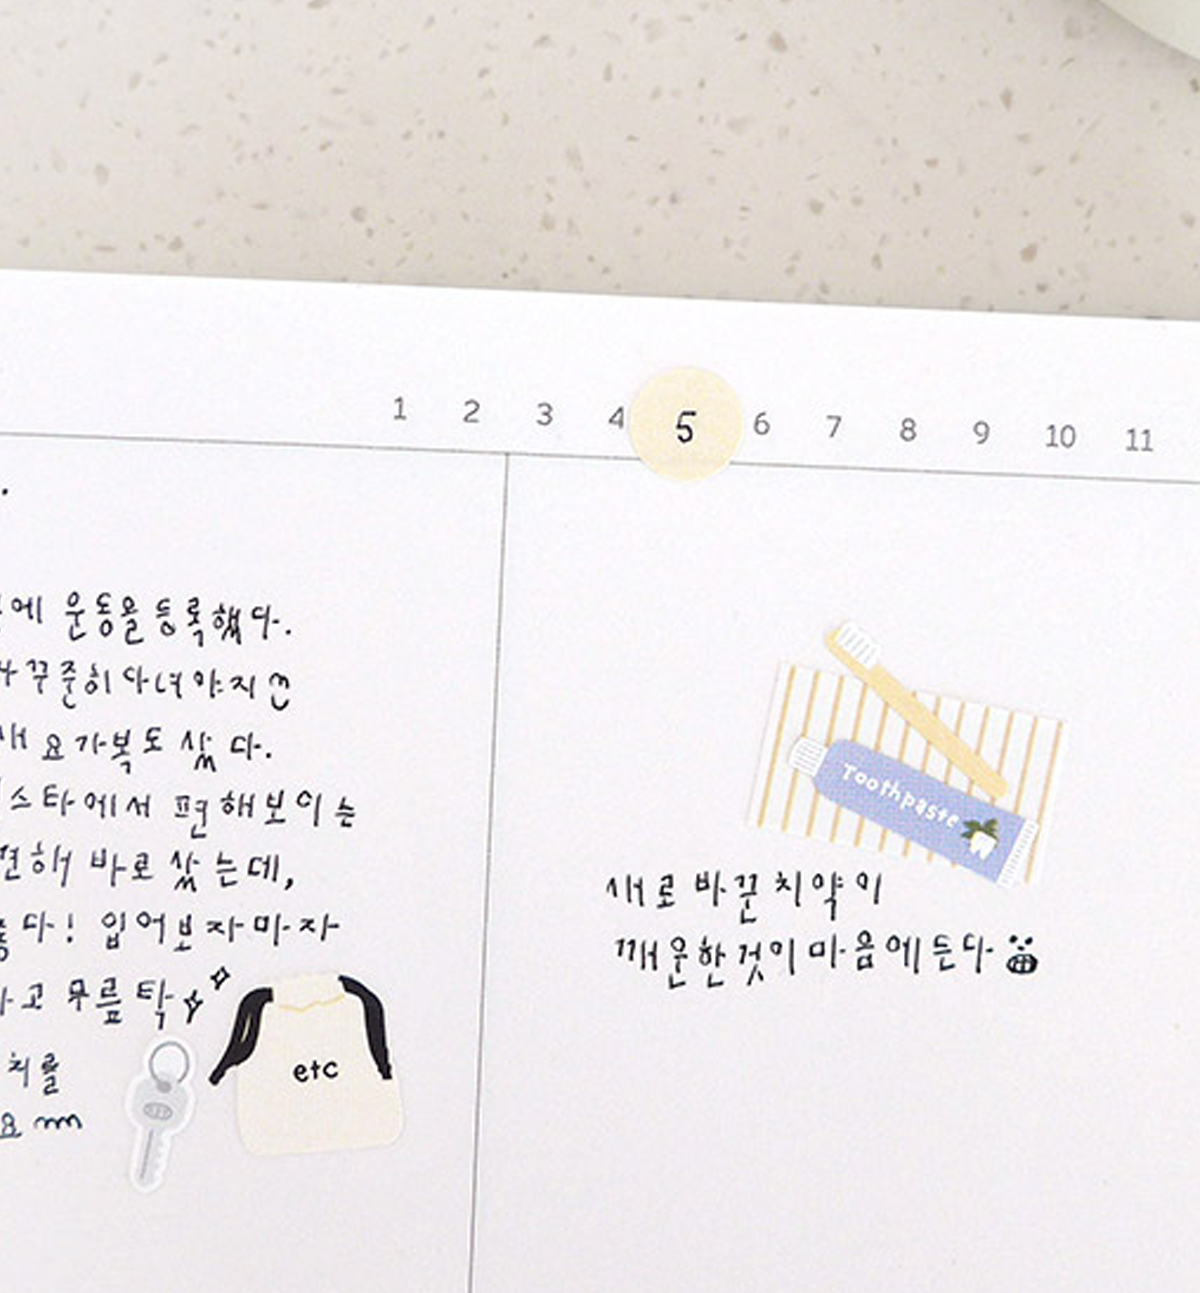 1 2 3 4 5 6 7 8 9 10 11
.
에 운동을 등록했다.
꾸준히 다녀야지
요가복도 샀다.
스타에서 편해보이는
편해 바로 샀는데,
다! 입어보자마자
고 무릎 탁
치를
요
etc
Toothpaste
새로 바꾼 치약이
깨운한것이 마음에든다